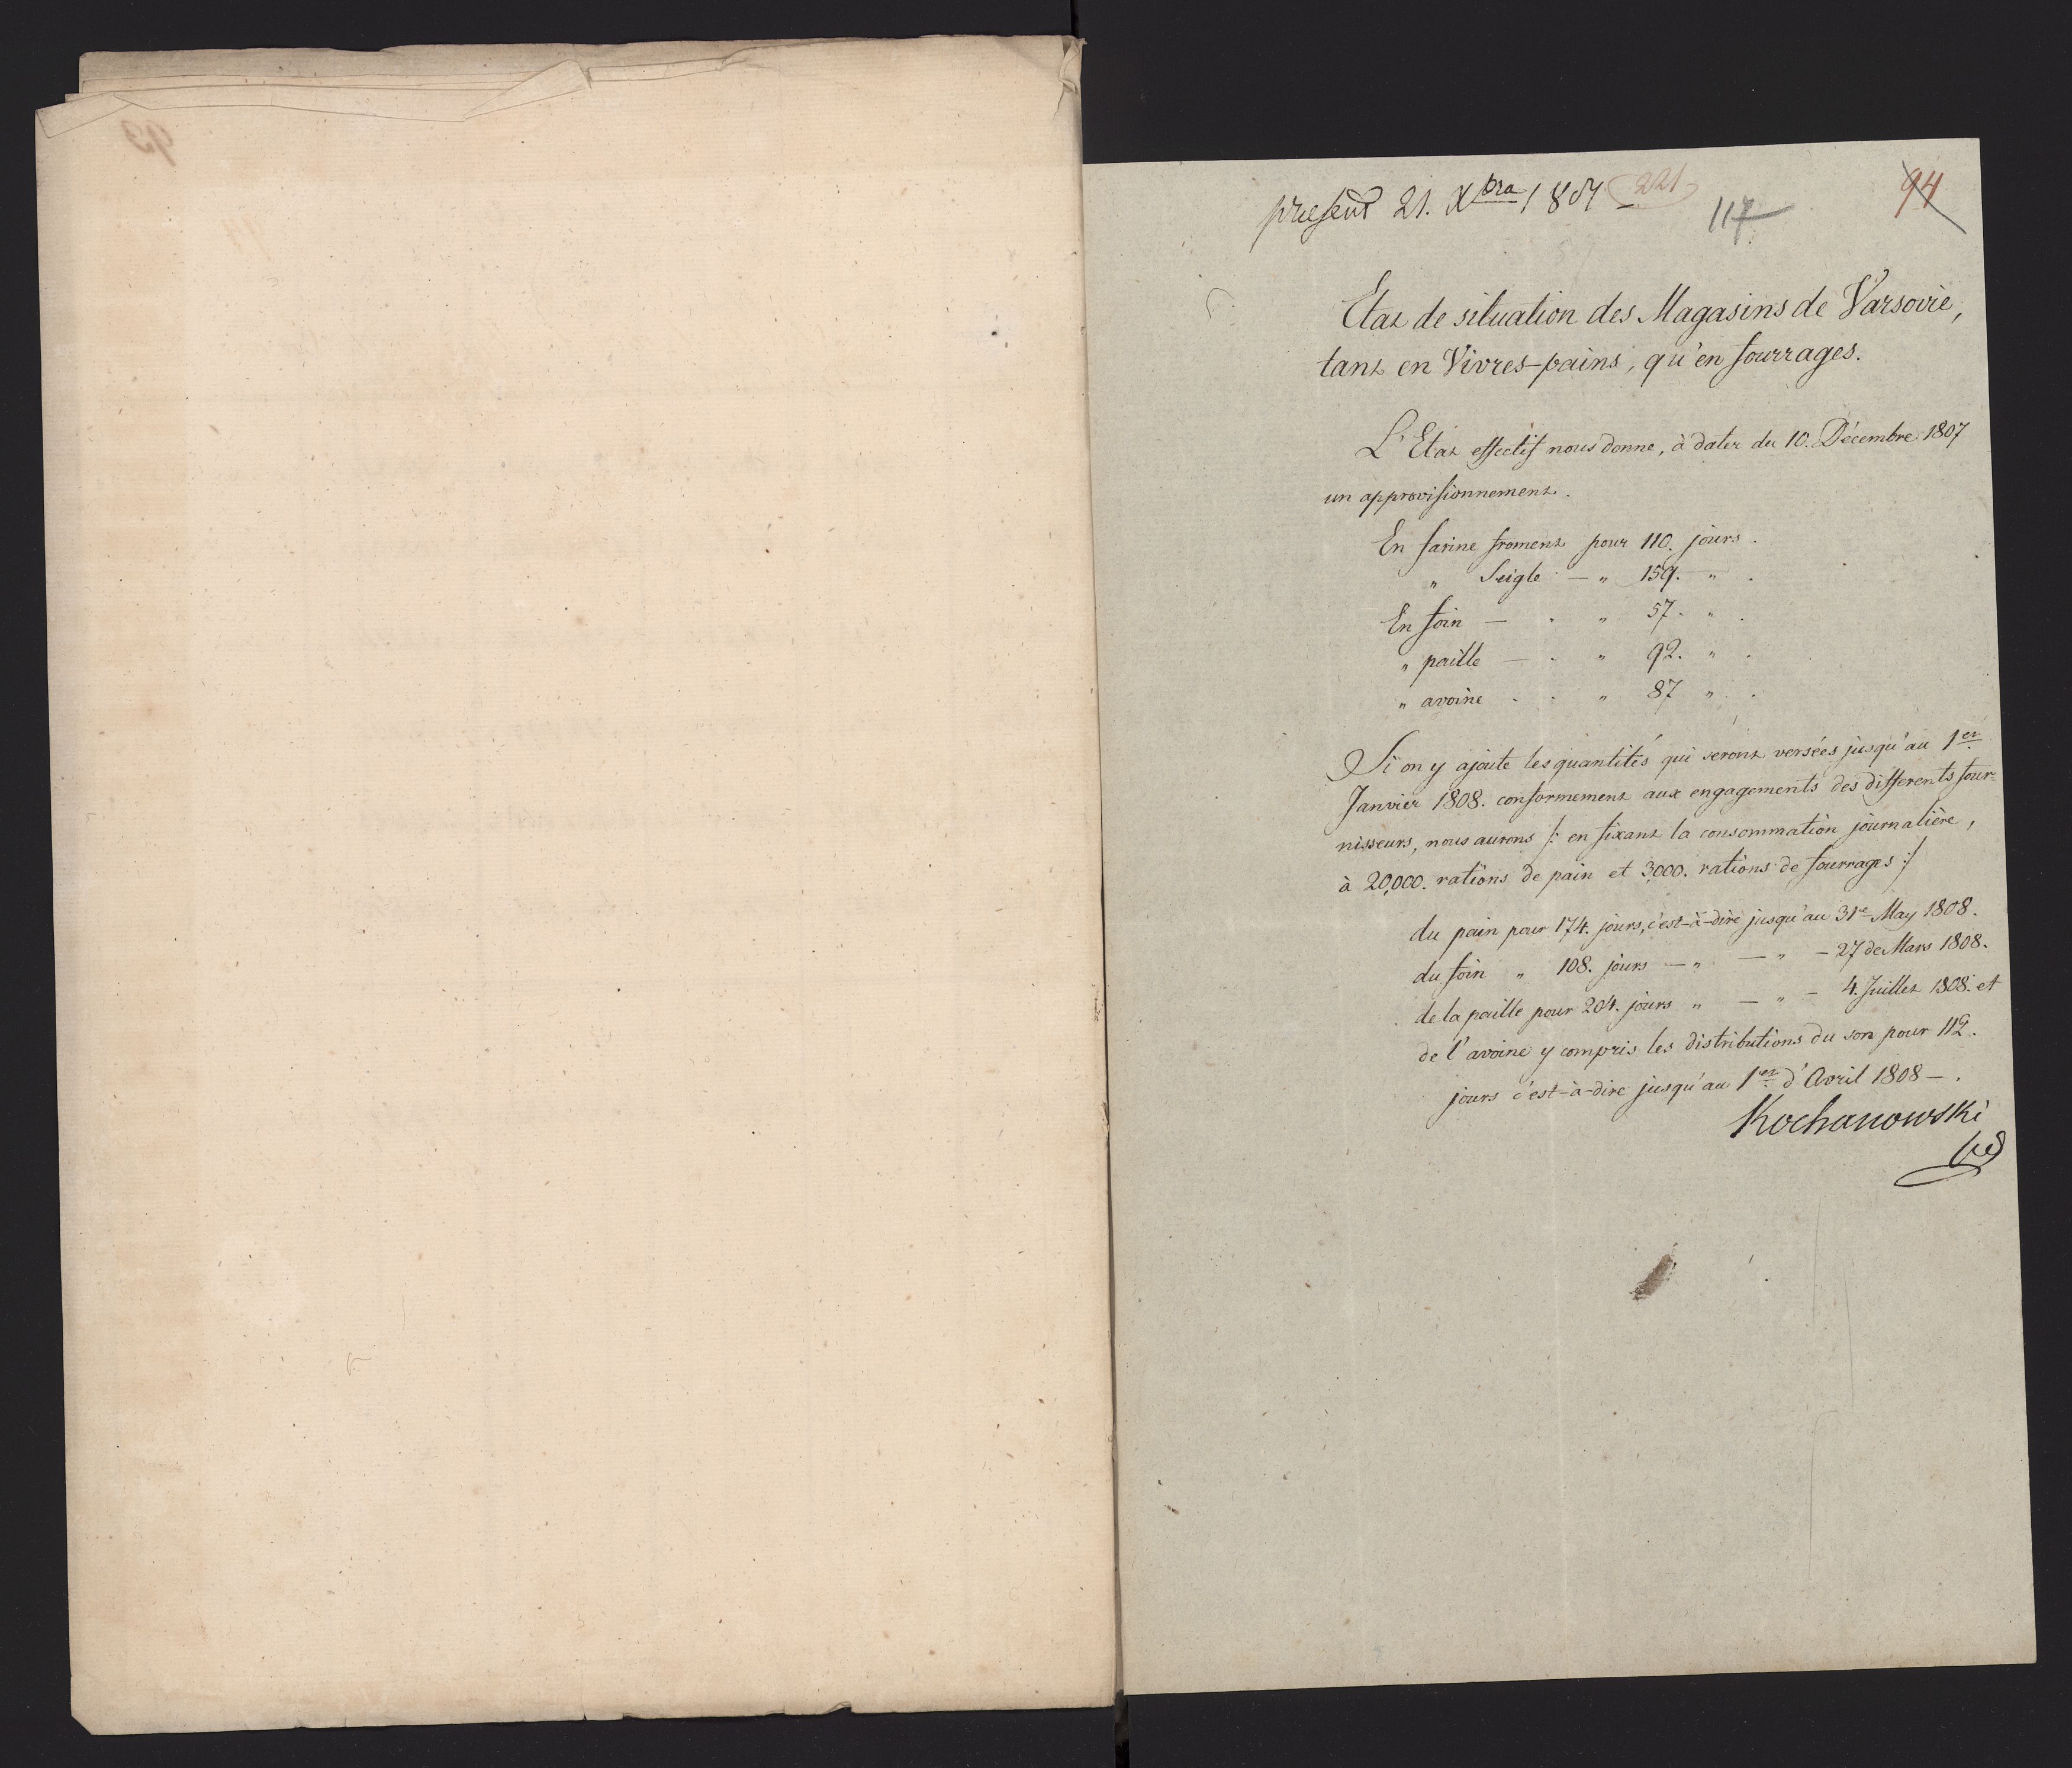 present 21. Xbra 1807 221
117
94
Etat de situation des Magasins de Varsovie,
tant en Vivres-pains, qu'en fourrages.
L'Etat effectif nous donne, à dater du 10. Décembre 1807
un approvisionnement.
En farine froment pour 110. jours.
" Seigle — " 159. " .
En foin — . " 57. " .
" paille — . " 92. " .
" avoine . . " 87 " .
Si on y ajoute les quantités qui seront versées jusqu'au 1er
Janvier 1808. conformement aux engagements des differents four-
nisseurs, nous aurons /: en fixant la consommation journalière,
à 20,000. rations de pain et 3,000. rations de fourrages :/
du pain pour 174. jours, c'est-à-dire jusqu'au 31e May 1808.
du foin " 108. jours — " — " — 27 de Mars 1808.
de la paille pour 204. jours " — " — 4. Juillet 1808. et
de l'avoine y compris les distributions du son pour 112.
jours c'est-à-dire jusqu'au 1er d'Avril 1808 — .
Kochanowski
93